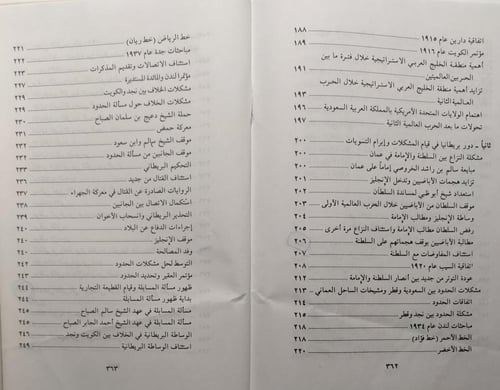 اتفاقية دارين عام ١٩١٥ ١٨٨
مؤتمر الكويت عام ١٩١٦ ١٨٩
أهمية منطقة الخليج العربي الاستراتيجية خلال فترة ما بين
الحربين العالميتين ١٩١
تزايد أهمية منطقة الخليج العربي الاستراتيجية خلال الحرب
العالمية الثانية ١٩٣
اهتمام الولايات المتحدة الأمريكية بالمملكة العربية السعودية ١٩٦
تحولات ما بعد الحرب العالمية الثانية ١٩٧
ثانياً - دور بريطانيا في قيام المشكلات وإبرام التسويات ٢٠٠
مشكلة النزاع بين السلطنة والإمامة في عمان ٢٠٠
مبايعة سالم بن راشد الخروصي إماماً على عمان ٢٠٠
تزايد هجمات الأباضيين وتدخل الإنجليز ٢٠١
استعداد شيخ أبو ظبي لمساندة السلطان ٢٠٢
موقف السلطان من الأباضيين خلال الحرب العالمية الأولى ٢٠٣
وساطة الإنجليز ومطالب الإمامة ٢٠٤
رفض السلطان مطالب الإمامة واستئناف النزاع مرة أخرى ٢٠٥
مطالبة الأباضيين بوقف هجماتهم على السلطنة ٢٠٦
استئناف المفاوضات مع السلطنة ٢٠٧
اتفاقية السيب عام ١٩٢٠ ٢٠٨
عودة التوتر من جديد بين أنصار السلطنة والإمامة ٢١٢
مشكلات الحدود بين السعودية وقطر ومشيخات الساحل العماني ٢١٣
اتفاقات الحدود ٢١٤
مشكلة الحدود بين نجد وقطر ٢١٥
مباحثات لندن عام ١٩٣٤ ٢١٨
الخط الأحمر (خط فؤاد) ٢١٨
الخط الأخضر ٢٢٠
٣٦٢
خط الرياض (خط ريان) ٢٢١
مباحثات جدة عام ١٩٣٧ ٢٢١
استئناف الاتصالات وتقديم المذكرات ٢٢٣
مؤتمرا لندن والمائدة المستديرة ٢٢٧
مشكلات الخلاف بين نجد والكويت ٢٢٩
مشكلات الخلاف حول مسألة الحدود ٢٢٩
حملة الشيخ دعيج بن سلمان الصباح ٢٣٠
معركة حمض ٢٣١
موقف الشيخ سالم وابن سعود ٢٣١
موقف الجانبين من مسألة الحدود
التحكيم البريطاني
استئناف القتال من جديد
الروايات الصادرة عن القتال في معركة الجهراء ٢٣٧
استكمال الاتصال بين الجانبين ٢٣٨
التحذير البريطاني وانسحاب الأخوان ٢٣٩
إجراءات الدفاع عن البلاد ٢٤٠
موقف الإنجليز ٢٤٠
وفد المصالحة ٢٤٠
التوسط لحل مشكلات الحدود ٢٤٢
مؤتمر العقير وتحديد الحدود ٢٤٢
ظهور مسألة المسابلة وقيام القطيعة التجارية ٢٤٤
بداية ظهور مسألة المسابلة ٢٤٤
مسألة المسابلة في عهد الشيخ سالم الصباح ٢٤٥
مسألة المسابلة في عهد الشيخ أحمد الجابر الصباح ٢٤٥
الوساطة البريطانية في الخلاف بين الكويت ونجد ٢٤٦
استئناف الوساطة البريطانية ٢٤٩
٣٦٣